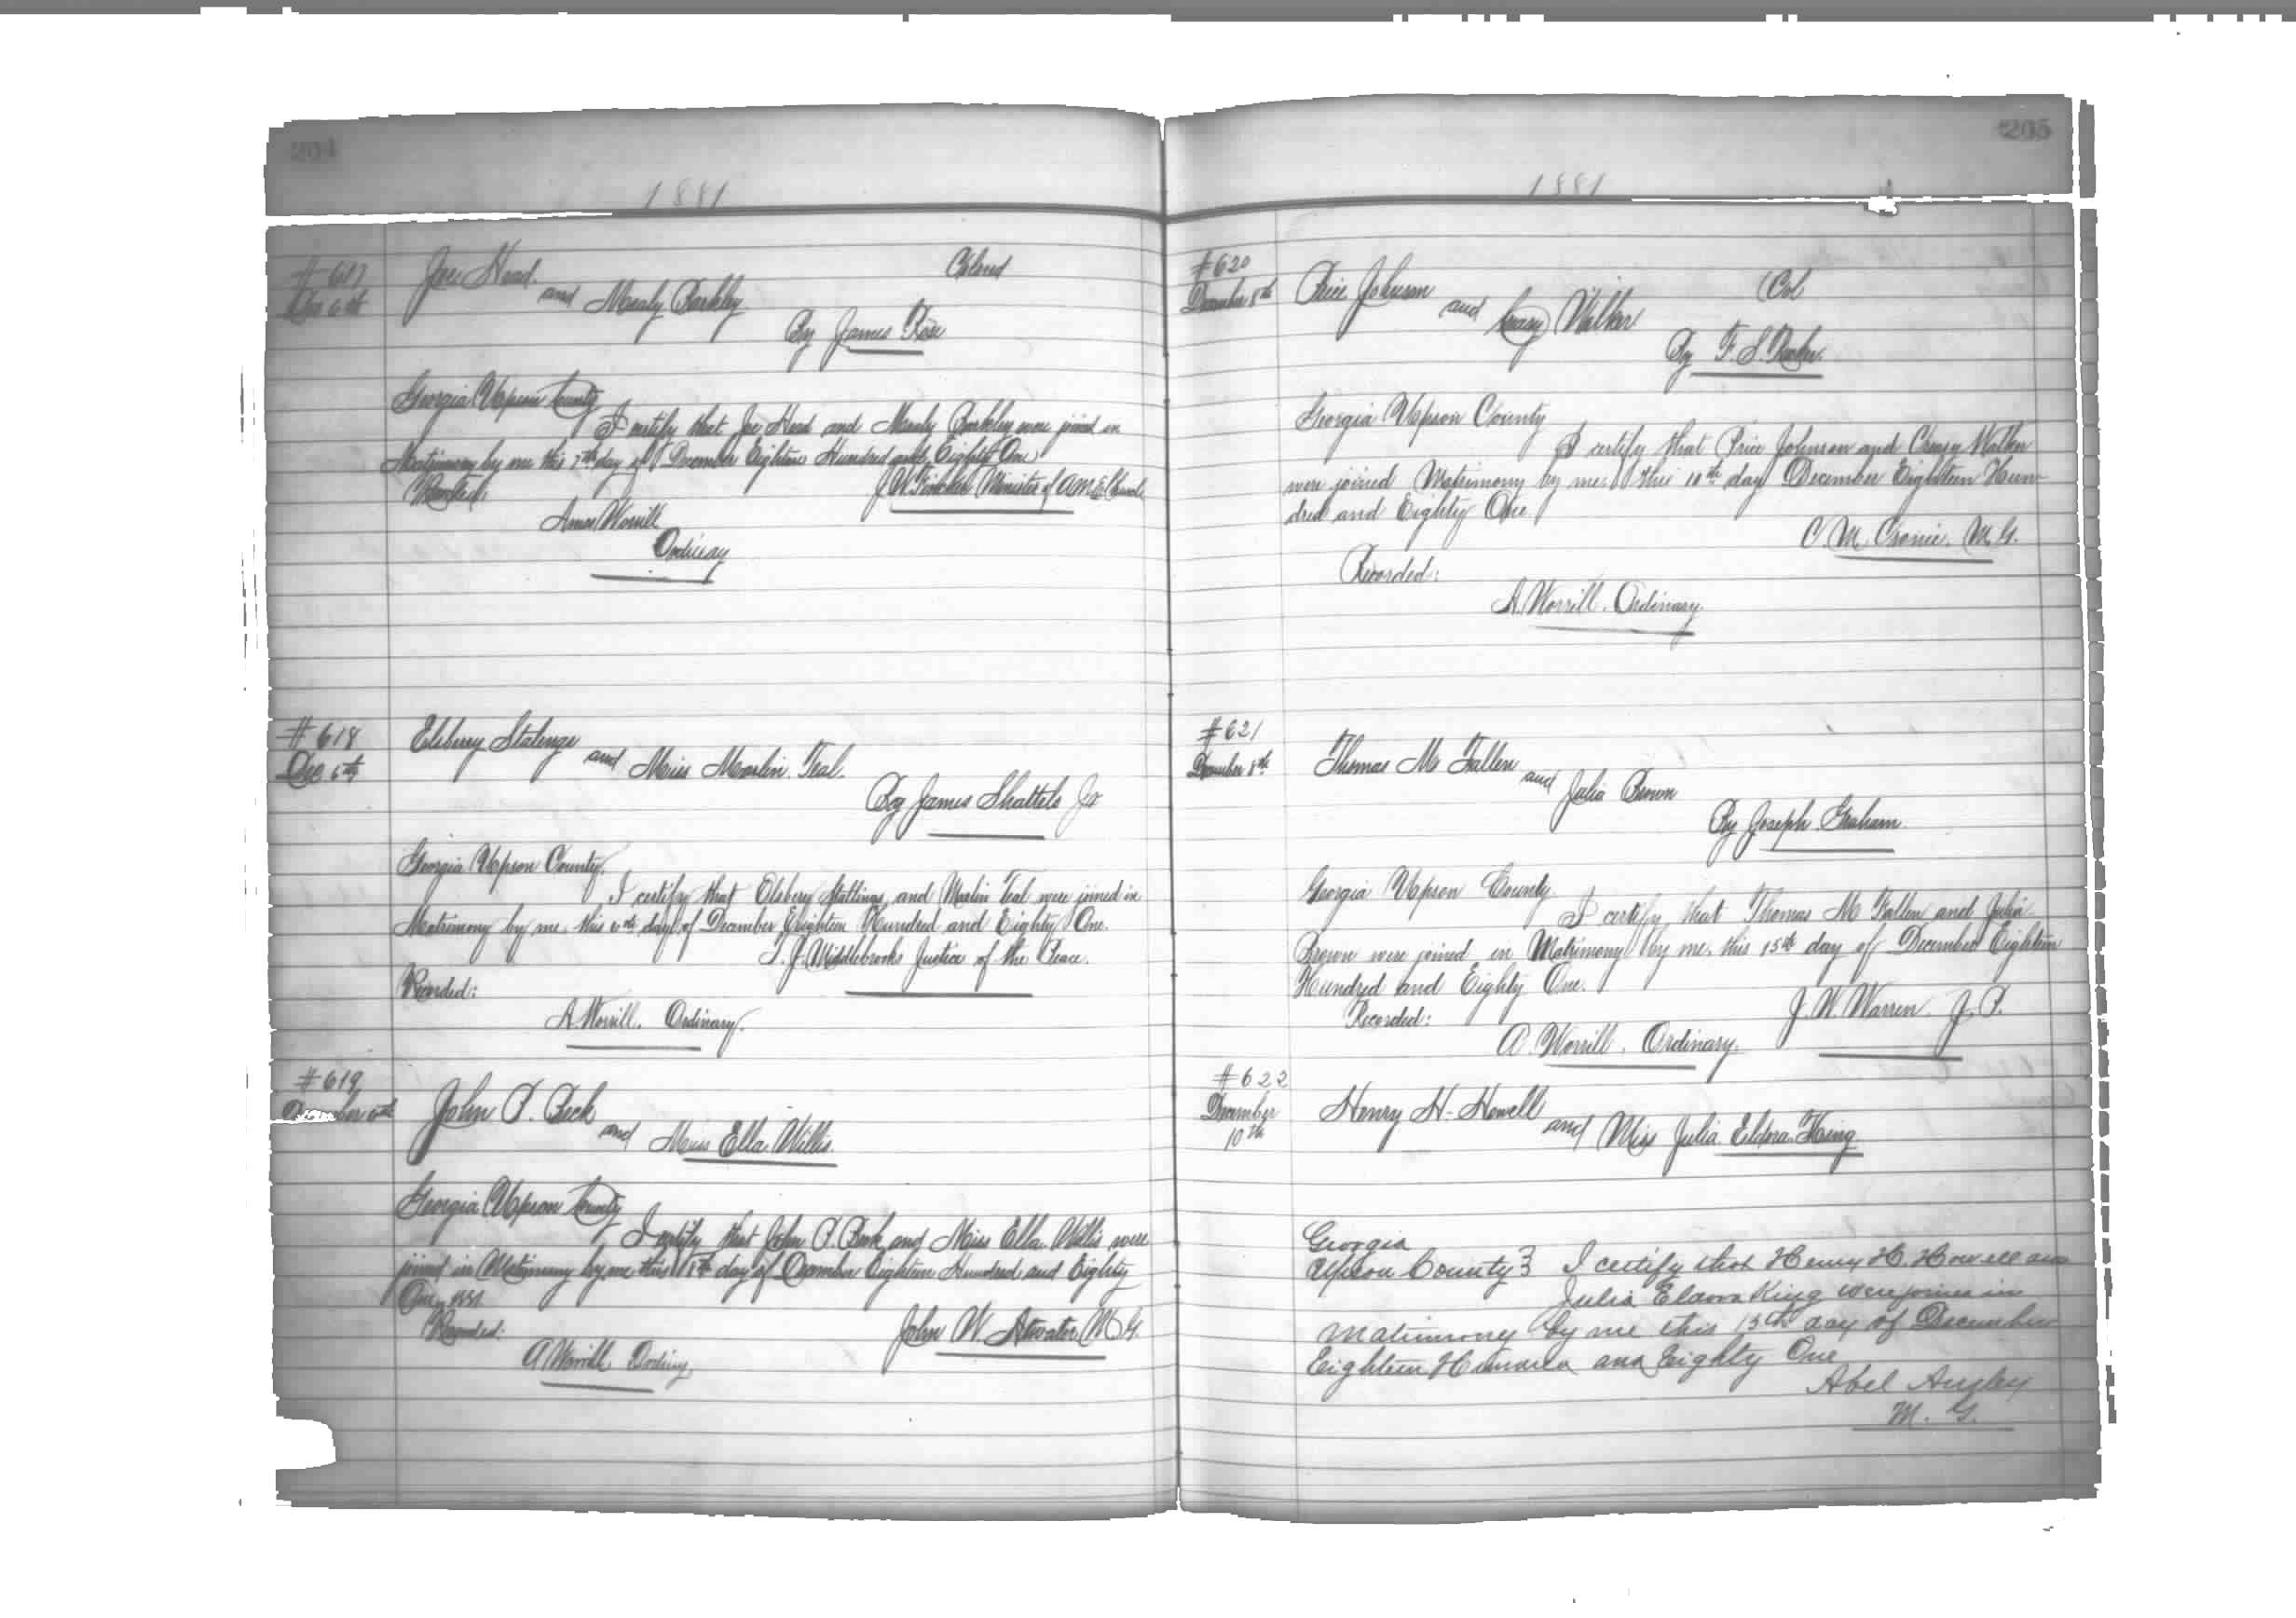 204
1881
# 617
Dec 6th
Joe Head
and Mealy Barkley
Colored
By James Rose
Georgia Upson County
I certify that Joe Head and Mealy Barkley were joined in
Matrimony by me this 7th day of December Eighteen Hundred and Eighty One
Recorded J. W. Fincher Minister of A M E Church
Amos Worrill
Ordinary
# 618
Dec 6th
Elsberry Stalings
and Miss Marlin Teal.
By James Shattels Jr
Georgia Upson County.
I certify that Elsbery Stallings and Marlin Teal were joined in
Matrimony by me this day of December Eighteen Hundred and Eighty One.
T. J. Middlebrooks Justice of the Peace.
Recorded:
A. Worrill. Ordinary.
# 619
December
John P. Beck
and Miss Ella Willis.
Georgia Upson County
I certify that John P. Beck and Miss Ella Willis were
joined in Matrimony by me this 8th day of December Eighteen Hundred and Eighty
One 1881
Recorded: John W. Atwater M G.
A Worrill Ordinary
205
1881
# 620
December 8th
Price Johnson
and Creasy Walker
Col
By F. S.
Georgia Upson County
I certify that Price Johnson and Creasy Walker
were joined Matrimony by me. this 10th day December Eighteen Hun-
dred and Eighty One
C. M. Cronic. M. G.
Recorded:
A. Worrill. Ordinary.
# 621
December 8th
Thomas Mc Fallen
and Julia Brown
By Joseph Graham
Georgia Upson County
I certify that Thomas Mc Fallen and Julia
Brown were joined in Matrimony by me. this 15th day of December Eighteen
Hundred and Eighty One.
Recorded: J. W. Warren J. P.
A. Worrill. Ordinary.
# 622
December
10th
Henry H. Howell
and Miss Julia Eldora King
Georgia
Upson County } I certify that Henry H. Howell and
Julia Eldora King were joined in
Matrimony by me this 15th day of December
Eighteen Hundred and Eighty One
Abel Ansley
M. G.